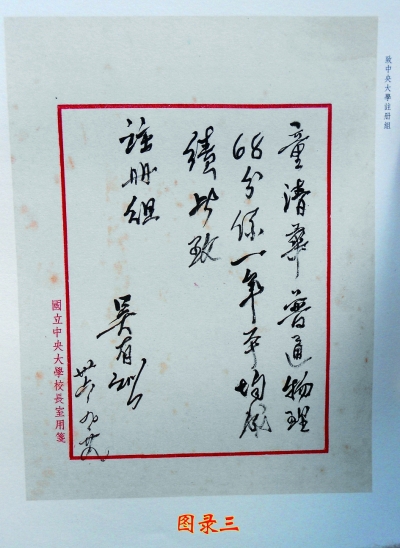 致中央大學註册組
童清華普通物理
68分係一年平均成
績此致
註册組
吳有訓
國立中央大學校長室用箋
图录三